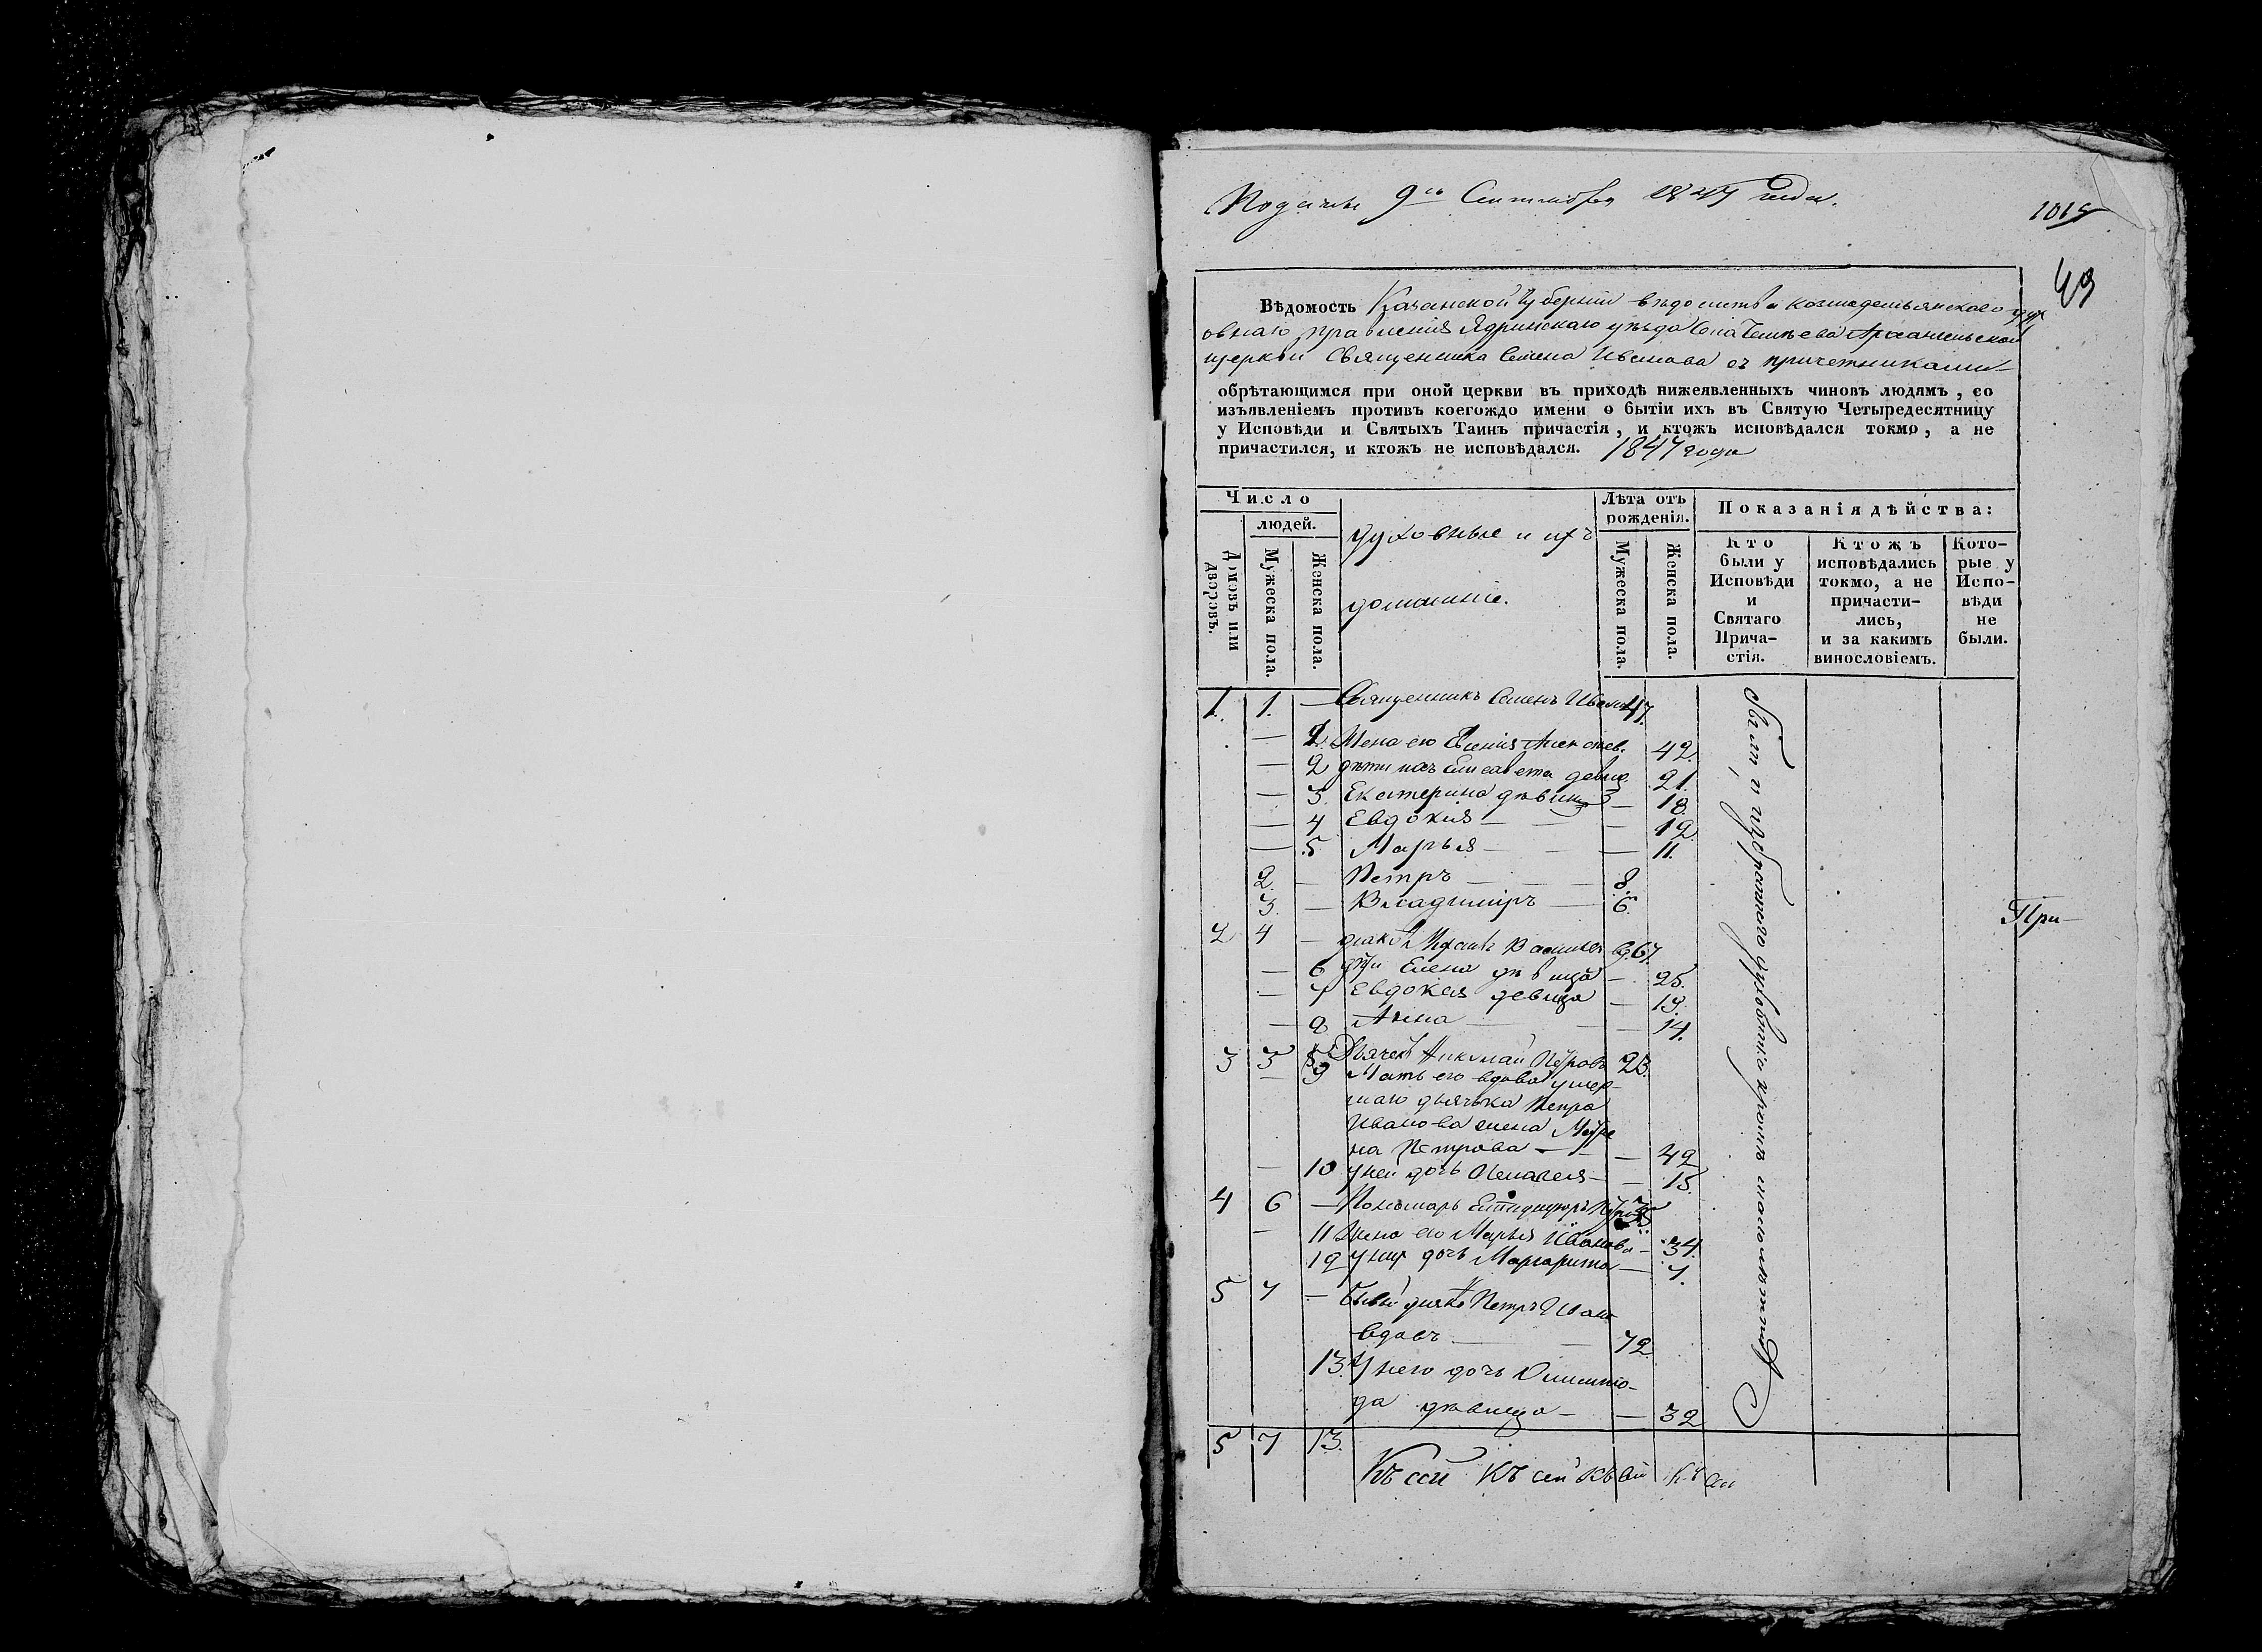 9го Сентября 1847 года.
1015
49
Вѣдомость Казанской Губерніи вѣдомства Козмодемьянскаго дух
овнаго правленія Ядринскаго уѣзда Села Архангельской
церкви Священника Семена Иванова съ причетниками
обрѣтающимся при оной церкви въ приходѣ нижеявленныхъ чиновъ людямъ, со
изъявленіемъ противъ коегождо имени о бытіи ихъ въ Святую Четыредесятницу
у Исповѣди и Святыхъ Таинъ причастія, и ктожъ исповѣдался токмо, а не
причастился, и ктожъ не исповѣдался. 1847 года
Число
людей.
Домовъ или дворовъ.
Мужеска пола.
Женска пола.
Духовные и ихъ
домашніе.
Лѣта отъ рожденія.
Мужеска пола.
Женска пола.
Показанія дѣйства:
Кто были у Исповѣди и Святаго Прича-стія.
Ктожъ исповѣдались токмо, а не причасти-лись, и за какимъ винословіемъ.
Кото-рые у Испо-вѣди не были.
1. 1. — Священникъ Семенъ Иванов 47.
— 1. Жена его 42.
— 2 дѣти ихъ Елисавета девица 21.
— 3. Екатерина дѣвица — 18
— 4 Евдокия — — 12
— 5 Марья — — 11.
2. — Петръ — 8.
3. — Владимiръ — 6.
2 4 — Васильев вд. 67.
— 6 Елена дѣвица — 25.
— 7 Евдокия девица — 19.
— 8 Анна — — 14.
3 5 Дьячекъ Николай Петровъ 23.
— 9 Мать его вдова умер-
шаго дьячька Петра
Иванова жена Матре
на Петрова — — 42
— 10 у ней дочь Пелагея — — 15.
4 6 — Пономарь 35
— 11 Жена его Марья Иванова — 34.
12 у них дочь Маргарита — 7.
5 7 — Петръ Иван
вдовъ — 72
13. У него дочь
да дѣвица — — 32
5 7 13.
Къ сей Къ сей Къ сей Къ сей
При—